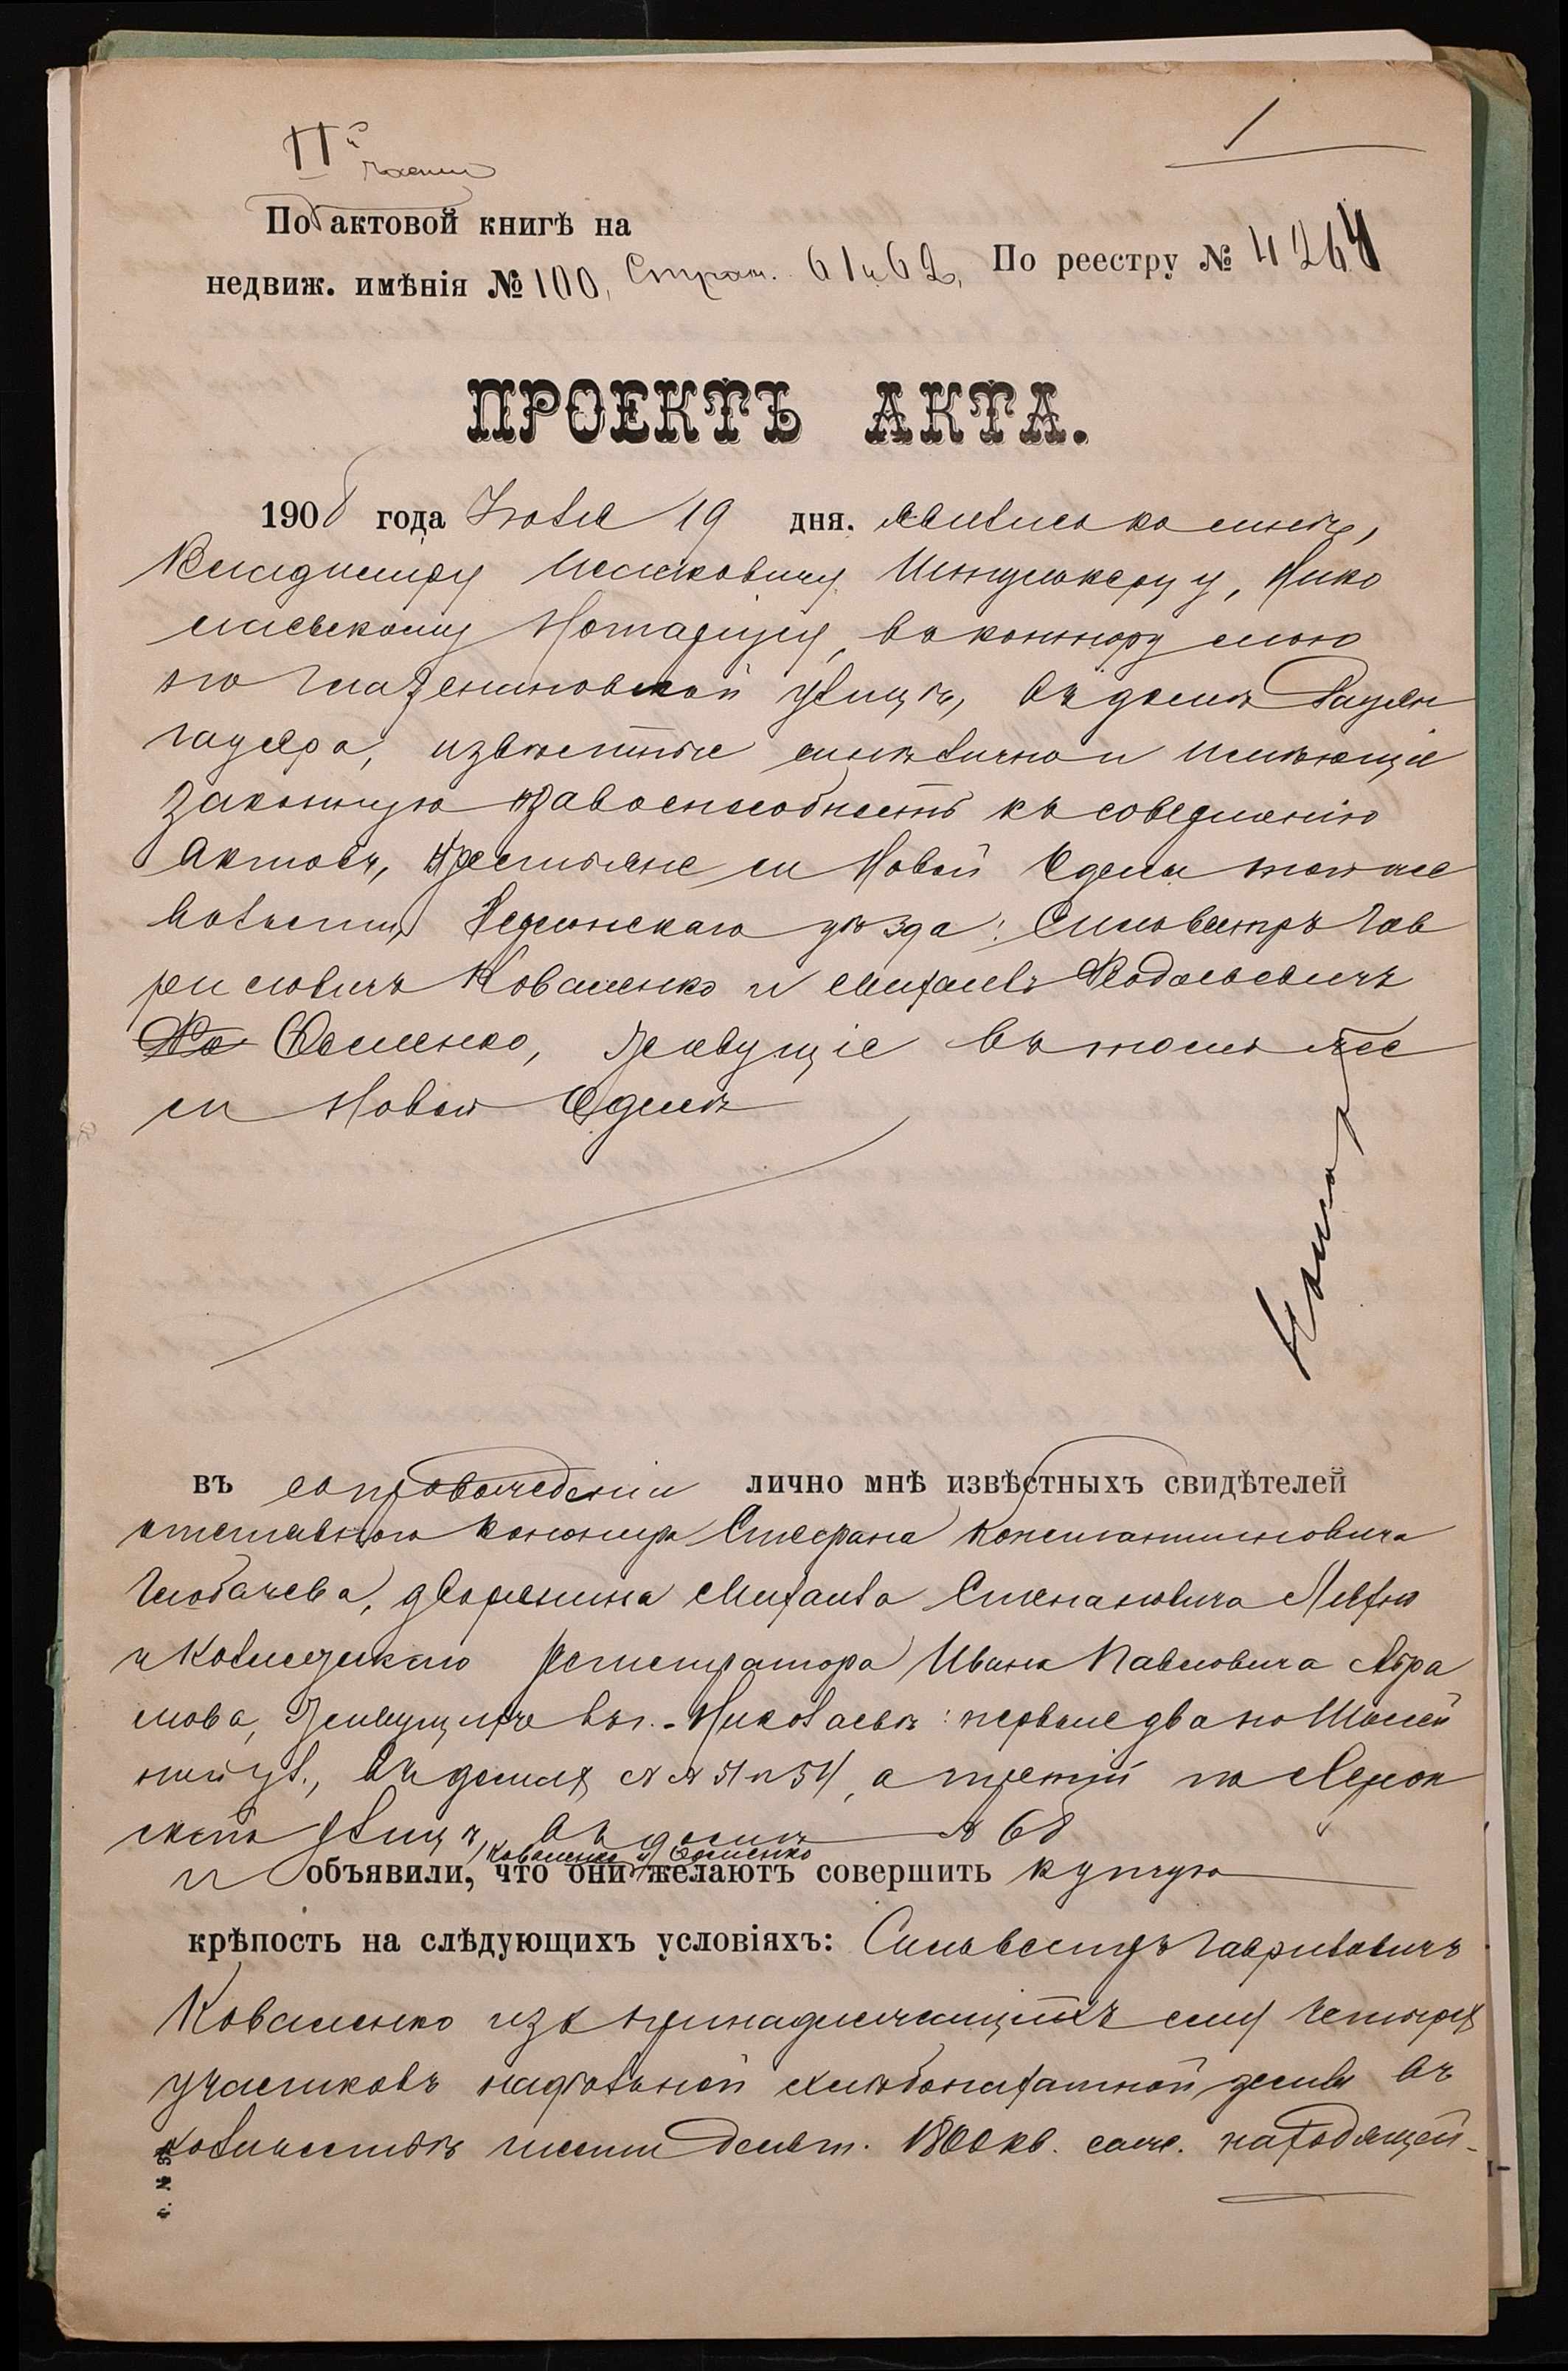 1
IIй части
По актовой книгѣ на
недвиж. имѣнія № 100, Стран. 61 и 62, По реестру № 4264
ПРОЕКТЪ АКТА.
1908 года Іюля 19 дня. явились ко мнѣ,
Владиміру Исааковичу Нико
лаевскому Нотаріусу, въ контору мою
по Глазенаповской улицѣ, въ домѣ
извѣстные мнѣ лично и имѣющіе
законную правоспособность къ совершенію
актовъ, крестьяне м Новой Одессы той же
волости, Херсонскаго уѣзда: Сильвестръ Гав
риловичъ Коваленко и Михаилъ
Ко Фоменко, живущіе въ томъ же
м Новой Одессѣ
въ сопровожденіи лично мнѣ извѣстныхъ свидѣтелей
отставного Стефана Константиновича
Глобачева, дворянина Михаила Степановича
и Коллежскаго Регистратора Ивана Павловича Абра
мова, живущихъ въ г. Николаевѣ: первые два по
ной ул., въ домахъ №№ 51 и 54, а третій по Херсон
ской улицѣ, въ домѣ № 68
Коваленко и Фоменко
и объявили, что они желаютъ совершить купчую
крѣпость на слѣдующихъ условіяхъ: Сильвестръ Гавриловичъ
Коваленко изъ принадлежащихъ ему четырехъ
участковъ надѣльной хлѣбопахатной земли въ
количествѣ шести десят. 1800 кв. саж. находящей-